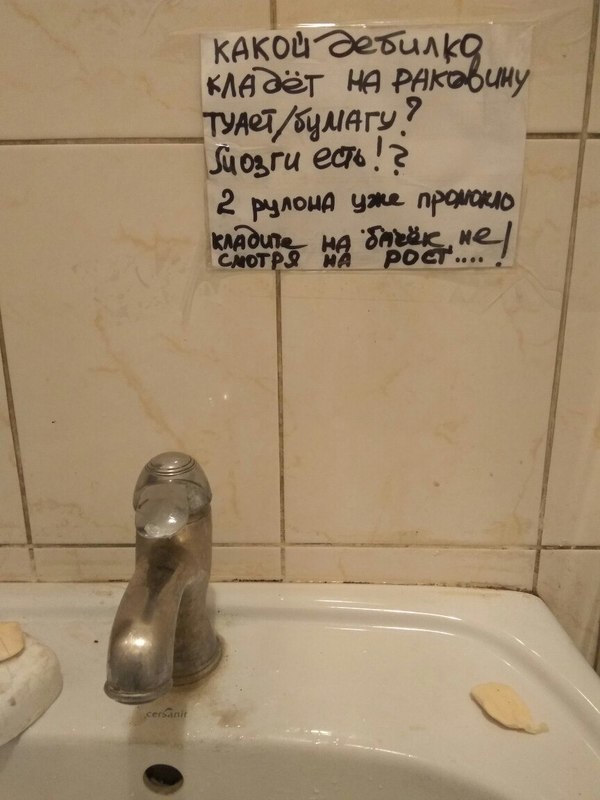 КАКОЙ дебилко
КЛАДЁТ НА РАКОВИНУ
ТУАЕТ/БУМАГУ?
Мозги есть!?
2 рулона уже промокло
кладите на бачёк не!
СМОТРЯ НА РОСТ....
cersanit